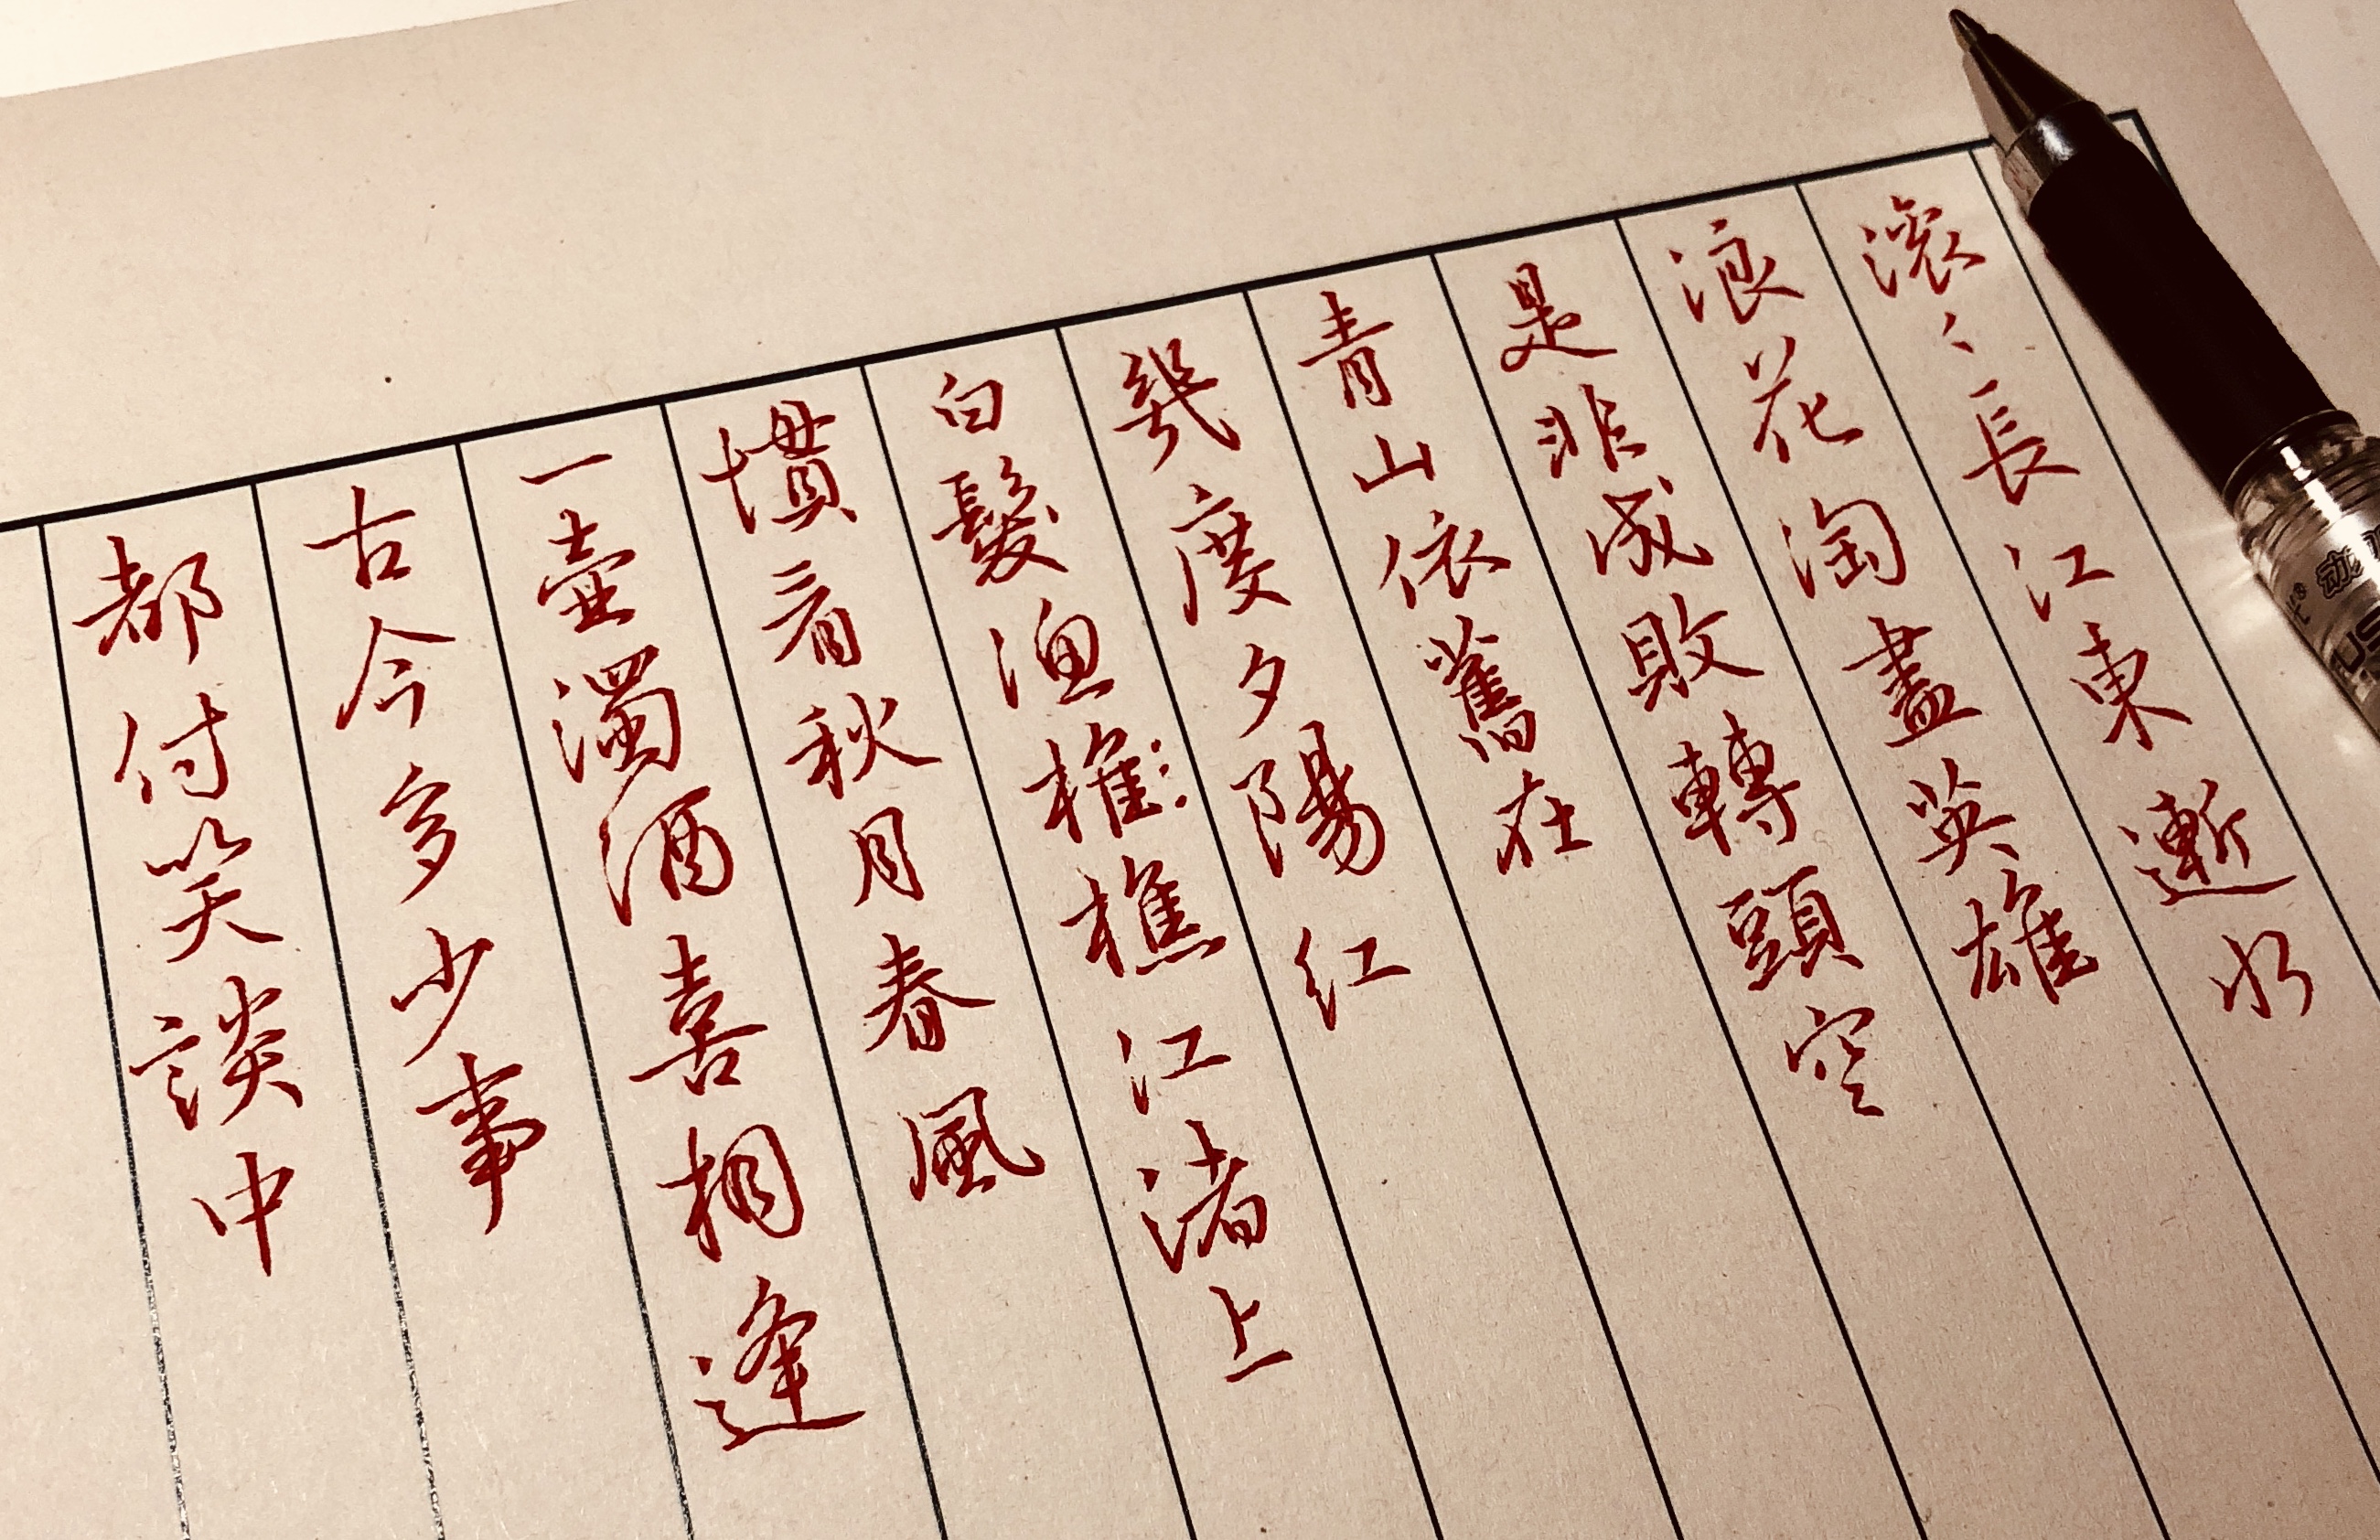 滾々長江東逝水
浪花淘盡英雄
是非成敗轉頭空
青山依舊在
幾度夕陽紅
白髮漁椎樵江渚上
慣看秋月春風
一壺濁酒喜相逢
古今多少事
都付笑談中